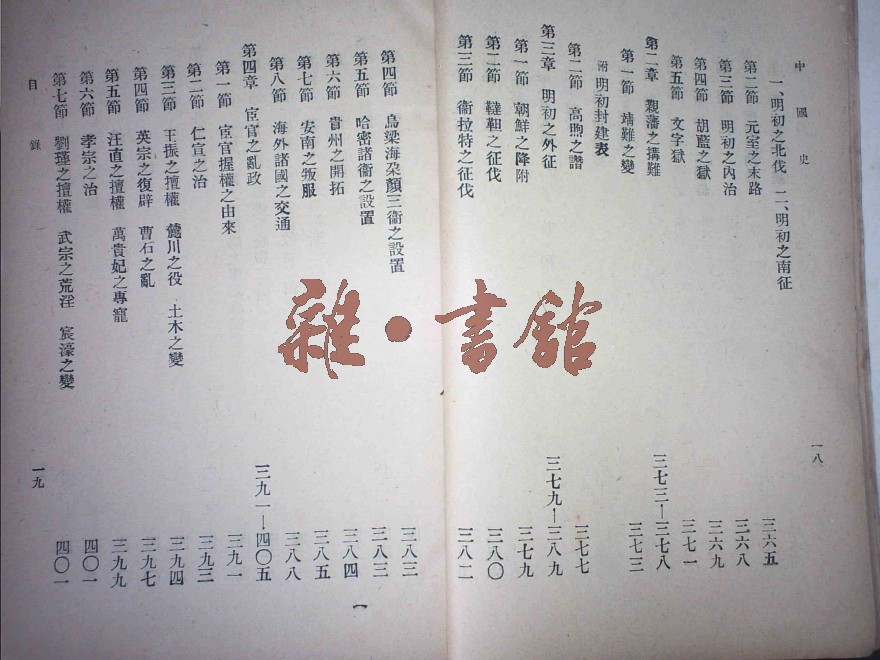 中國史
一八
一、明初之北伐 二、明初之南征 三六五
第二節 元室之末路 三六八
第三節 明初之內治 三六九
第四節 胡藍之獄 三七一
第五節 文字獄
第二章 親藩之搆難 三七三—三七八
第一節 靖難之變 三七三
附明初封建表
第二節 高煦之譖 三七七
第三章 明初之外征 三七九—三八九
第一節 朝鮮之降附 三七九
第二節 韃靼之征伐 三八〇
第三節 衞拉特之征伐 三八二
第四節 烏梁海朶顏三衞之設置 三八三
第五節 哈密諸衞之設置 三八三
第六節 貴州之開拓 三八四
第七節 安南之叛服 三八五
第八節 海外諸國之交通 三八八
第四章 宦官之亂政 三九一—四〇五
第一節 宦官握權之由來 三九一
第二節 仁宣之治 三九三
第三節 王振之擅權 麓川之役 土木之變 三九四
第四節 英宗之復辟 曹石之亂 三九七
第五節 汪直之擅權 萬貴妃之專寵 三九九
第六節 孝宗之治 四〇一
第七節 劉瑾之擅權 武宗之荒淫 宸濠之變 四〇一
目錄
一九
雜•書館